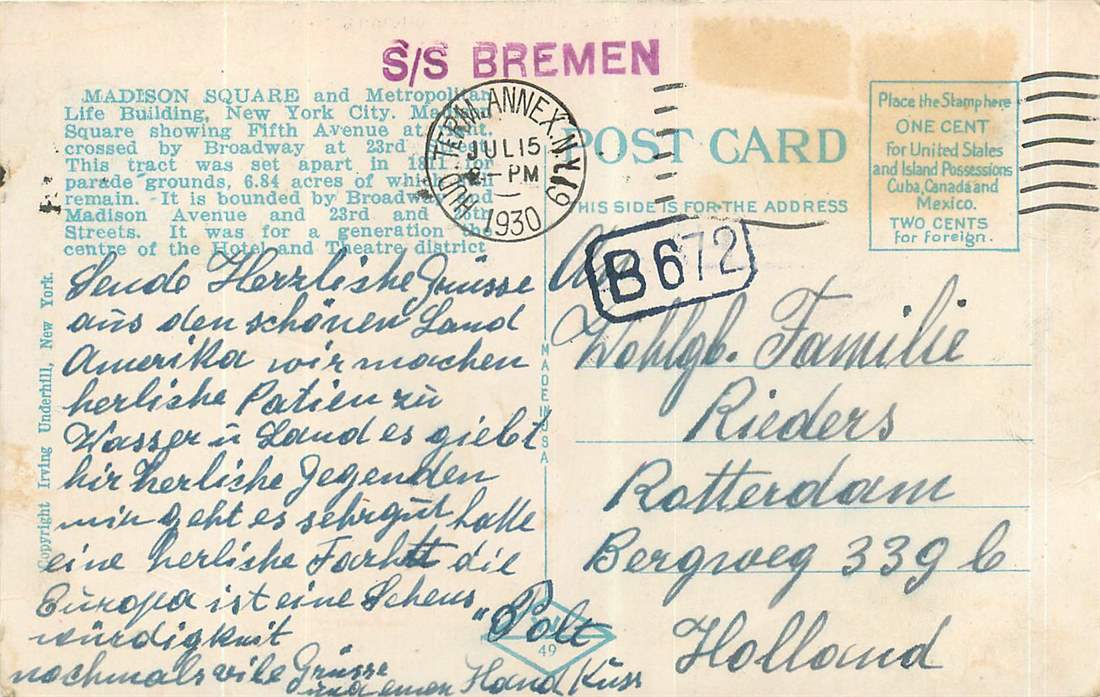 S/S BREMEN
MADISON SQUARE and Metropolitan
Life Building, New York City. Madison
Square showing Fifth Avenue at right,
crossed by Broadway at 23rd Street.
This tract was set apart in 1811 for
parade grounds, 6.84 acres of which still
remain. It is bounded by Broadway and
Madison Avenue and 23rd and 26th
Streets. It was for a generation the
centre of the Hotel and Theatre district
Copyright Irving Underhill, New York.
HUD. TERM. ANNEX. N.Y. 19
JUL 15
PM
1930
POST CARD
THIS SIDE IS FOR THE ADDRESS
Place the Stamp here
ONE CENT
for United States
and Island Possessions
Cuba, Canada and
Mexico.
TWO CENTS
for Foreign.
B672
MADE IN USA
49
Sende Herzlishe Grüsse
aus den schönen Land
Amerika wir machen
herlishe Patien zu
Wasser u Land es giebt
hir herliche Gegenden
mir geht es sehr gut hatte
eine herlishe Farhtt die
Europa ist eine Sehens
würdigkeit "Polt
nochmals vile Grüsse
und einen Hand Kuss
An
Wohlgb. Familie
Rieders
Rotterdam
Bergweg 339 b
Holland